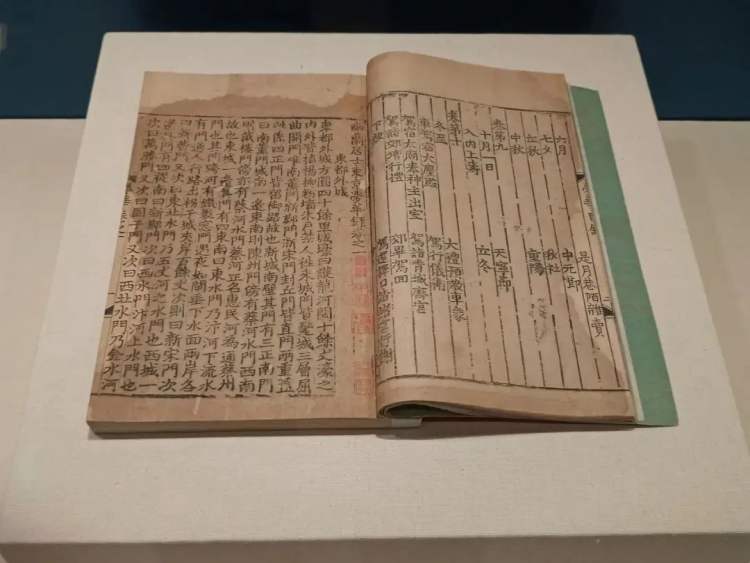 六月　是月巷陌雜賣
七夕　中元節
立秋　秋社
中秋　重陽
卷第九
十月一日　天寧節
入内上壽　立冬
卷第十
冬至　大禮預教車象
車駕宿大慶殿　駕行儀衛
駕宿太廟奉神主出室　駕詣青城齋宮
駕詣郊壇行禮　郊畢駕回
下赦　駕還擇日詣諸宮行謝
幽蘭居士東京夢華錄卷之一
東都外城
東都外城方圓四十餘里城壕曰護龍河闊十餘丈濠之
内外皆植楊柳粉墻朱戶禁人往來城門皆甕城三層屈
曲開門唯南薰門新鄭門新宋門封丘門皆直門兩重蓋
此係四正門皆留御路故也新城南壁其門有三正南門
曰南薰門城南一邊東南則陳州門傍有蔡河水門西南
則戴樓門傍亦有蔡河水門蔡河正名惠民河爲通蔡州
故也東城一邊其門有四東南曰東水門乃汴河下流水
門也其門跨河有鐵裹窻門遇夜如閘垂下水面兩岸各
有門通人行路出拐子城夾岸百餘丈次則曰新宋門次
曰新曹門又次曰東北水門乃五丈河之水門也西城一
邊其門有四從南曰新鄭門次曰西水門汴河上水門也
次曰萬勝門又次曰固子門又次曰西北水門乃金水河